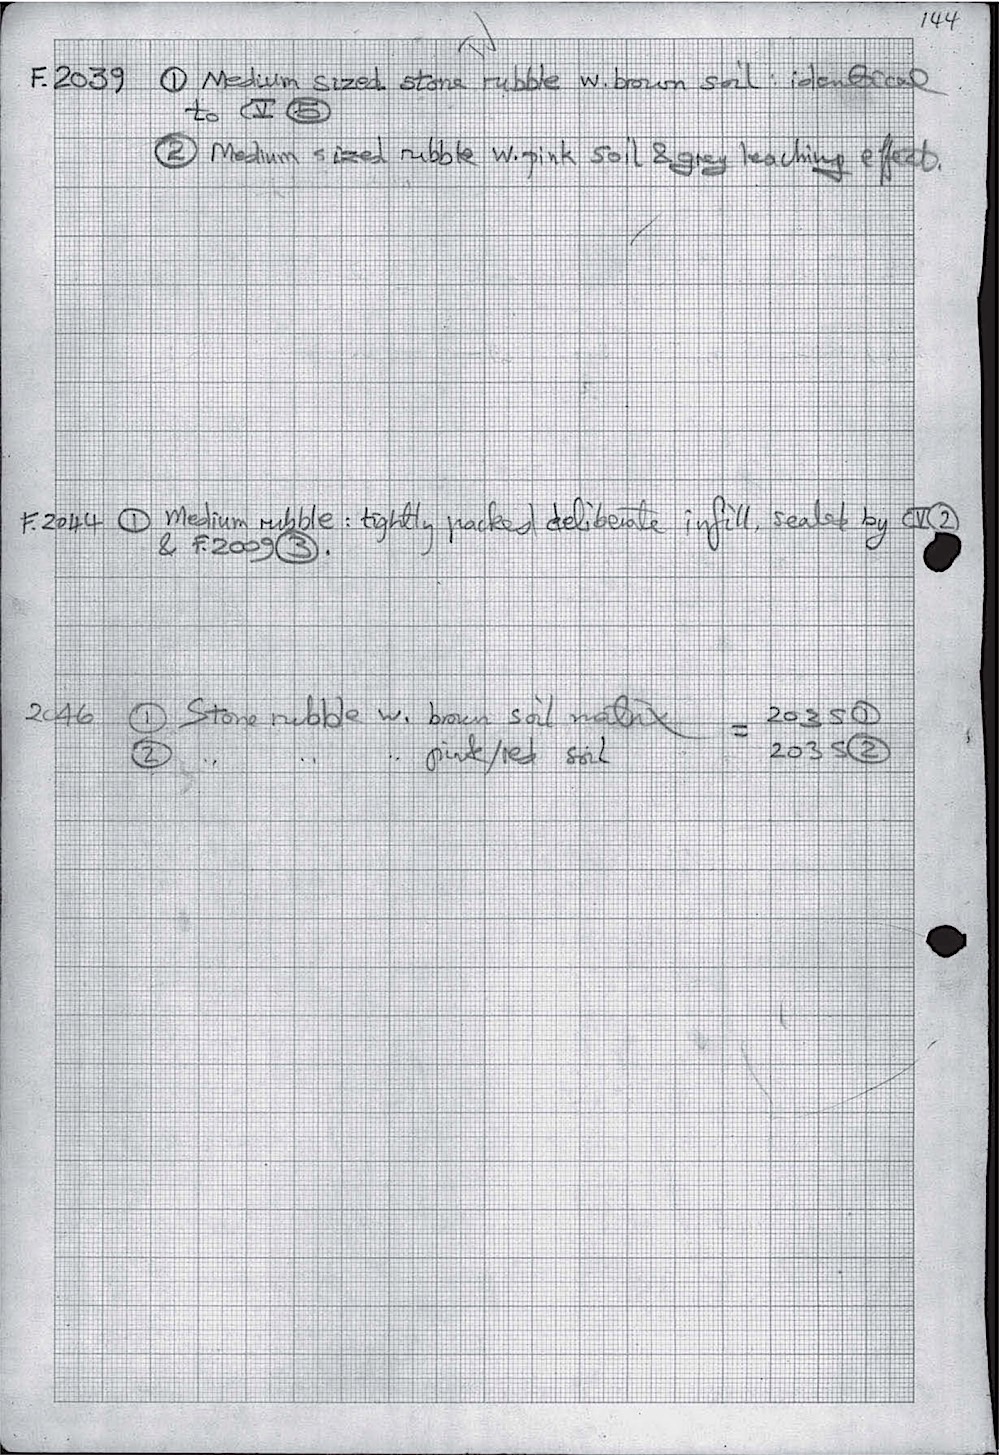 144
F.2039 ① Medium sized stone rubble w. brown soil : identical
to CV ⑤
② Medium sized rubble w. pink soil & grey leaching effect.
F.2044 ① Medium rubble : tightly packed deliberate infill, sealed by CV②
& F.2009③.
2046 ① Stone rubble w. brown soil matrix = 2035①
② " " " pink/red soil 2035②